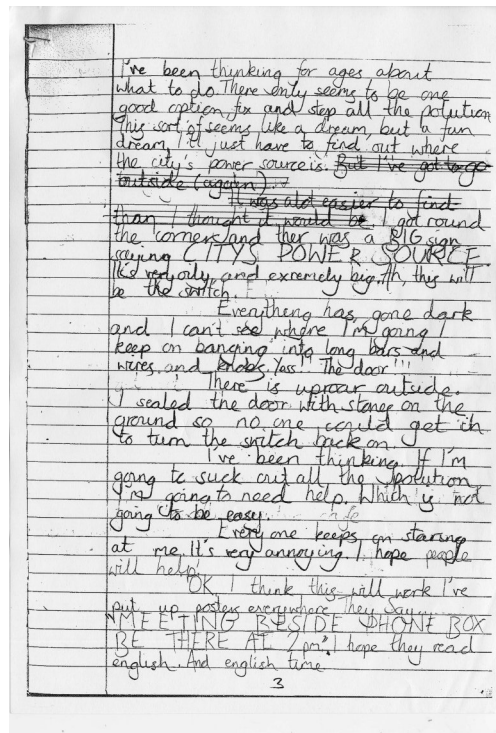 I've been thinking for ages about
what to do. There only seems to be one
good option fix and stop all the polution
This sort of seems like a dream, but a fun
dream, I'll just have to find out where
the city's power source is. But I've got to go
outside (again).
It was alot easier to find
than I thought it would be. I got round
the corner and ther was a BIG sign
saying CITYS POWER SOURCE
It's very oily and extremely big. Ah, this will
be the switch.
Everything has gone dark
and I can't see where I'm going I
keep on banging into long bars and
wires and knobs. Yass!! The door!!!
There is uproar outside.
I sealed the door with stones on the
ground so no one could get in
to turn the switch back on.
I've been thinking. If I'm
going to suck out all the polution,
I'm going to need help. Which is not
going to be easy.
Every one keeps on staring
at me. It's very annoying. I hope people
will help!
OK I think this will work I've
put up posters everywhere They say
"MEETING BESIDE PHONE BOX
BE THERE AT 2pm". I hope they read
english. And english time.
3